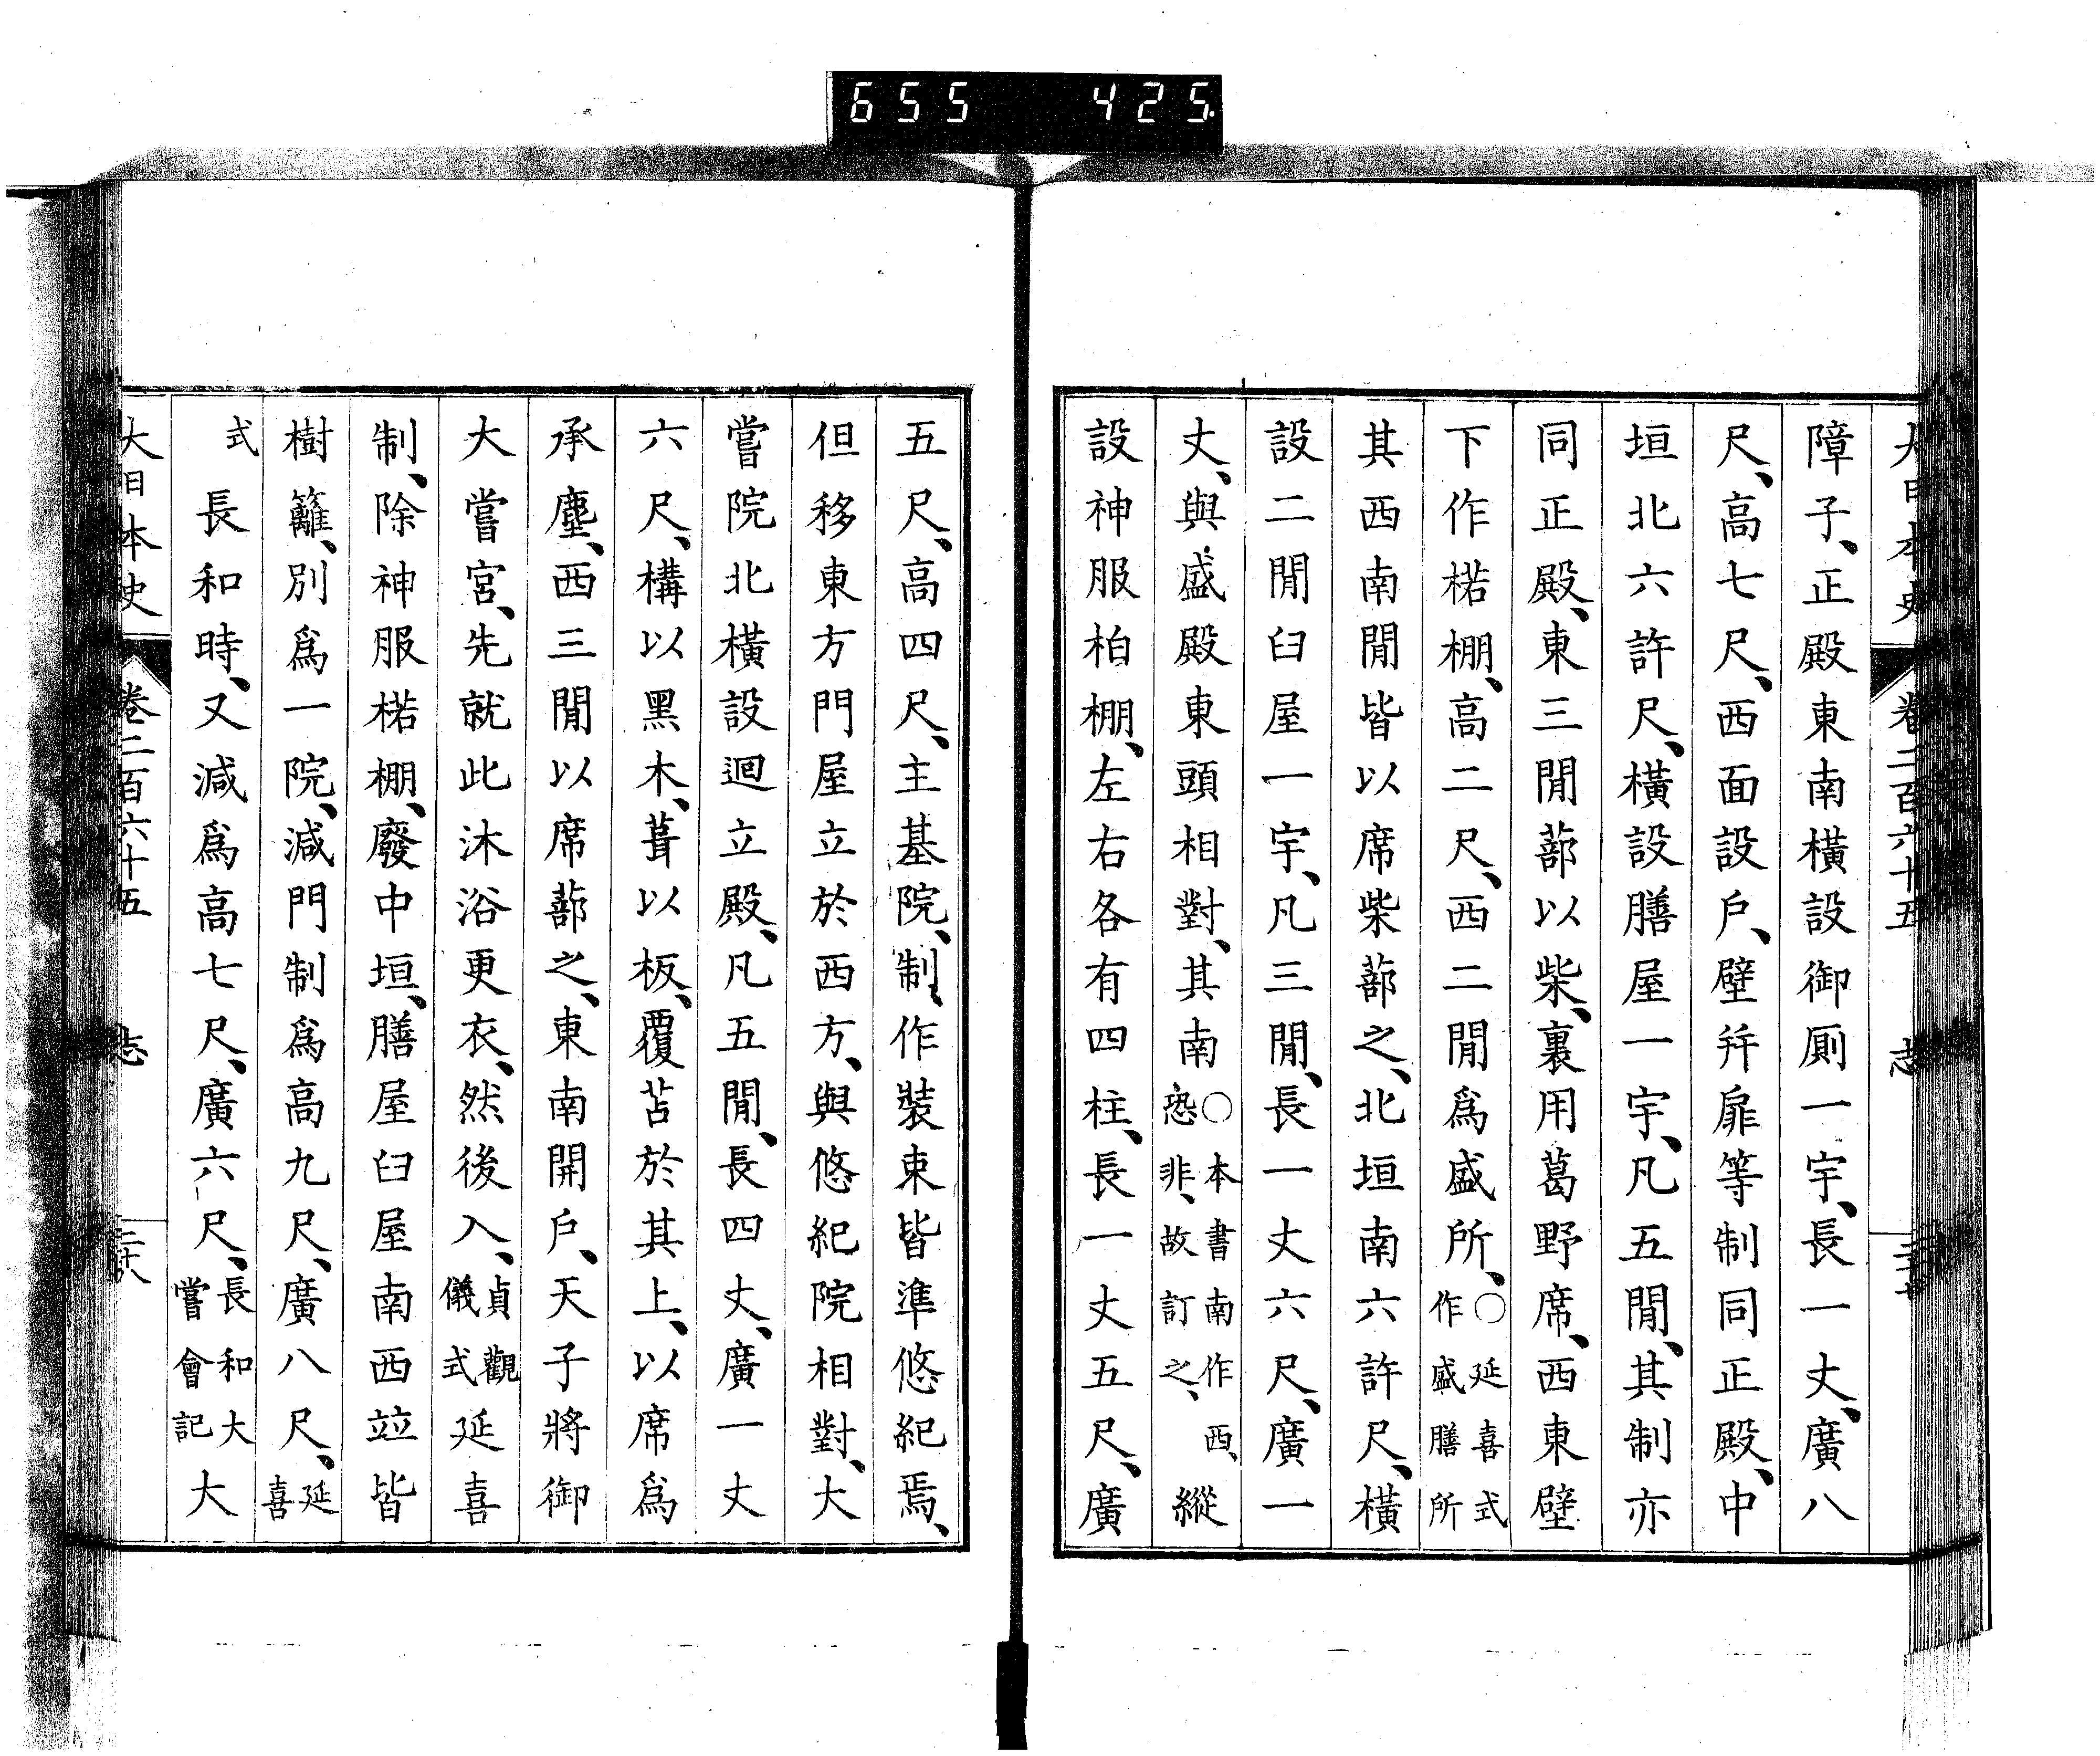 655 425
大日本史 卷二百六十五 志
障子、正殿東南橫設御厠一宇、長一丈、廣八
尺、高七尺、西面設戶、壁幷扉等制同正殿、中
垣北六許尺、橫設膳屋一宇、凡五閒、其制亦
同正殿、東三閒蔀以柴、裏用葛野席、西東壁
下作楉棚、高二尺、西二閒爲盛所、〇延喜式作盛膳所
其西南閒皆以席柴蔀之、北垣南六許尺、橫
設二閒臼屋一宇、凡三閒、長一丈六尺、廣一
丈、與盛殿東頭相對、其南〇本書南作西、恐非、故訂之、縱
設神服柏棚、左右各有四柱、長一丈五尺、廣
五尺、高四尺、主基院、制作裝束皆準悠紀焉、
但移東方門屋立於西方、與悠紀院相對、大
嘗院北橫設迴立殿、凡五閒、長四丈、廣一丈
六尺、構以黑木、葺以板、覆苫於其上、以席爲
承塵、西三閒以席蔀之、東南開戶、天子將御
大嘗宮、先就此沐浴更衣、然後入、貞觀儀式延喜
制、除神服楉棚、廢中垣、膳屋臼屋南西竝皆
樹籬、別爲一院、減門制爲高九尺、廣八尺、延喜
式長和時、又減爲高七尺、廣六尺、長和大嘗會記大
大日本史 卷二百六十五 志 二十八